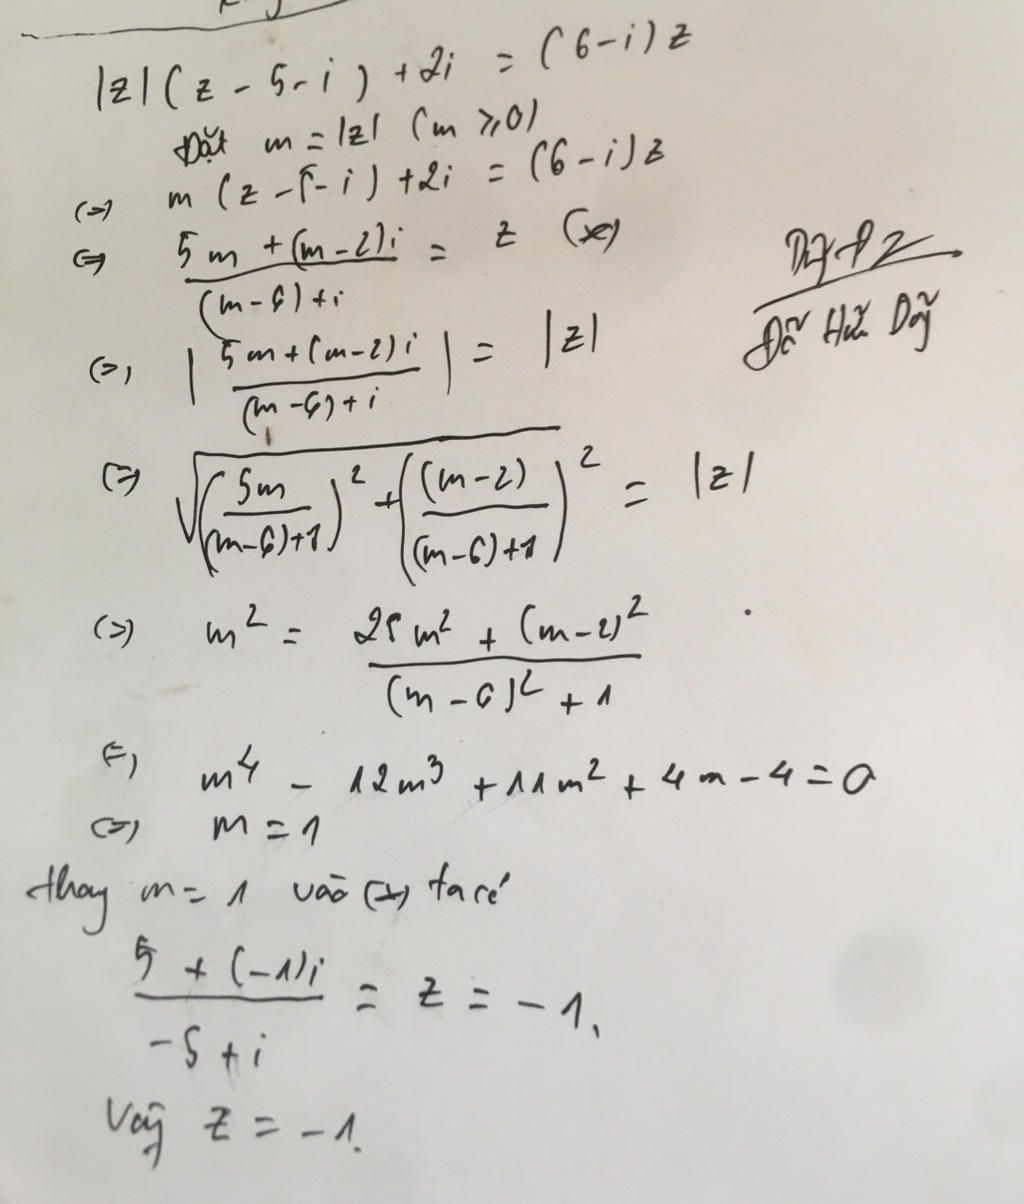 |z|(z - 5 - i) + 2i = (6 - i)z
Đặt m = |z| (m ≥ 0)
(=) m(z - 5 - i) + 2i = (6 - i)z
(=) \frac{5m + (m-2)i}{(m-6) + i} = z (*)
(=) |\frac{5m + (m-2)i}{(m-6) + i}| = |z|
(=) \sqrt{(\frac{5m}{(m-6)+1})^2 + (\frac{(m-2)}{(m-6)+1})^2} = |z|
(=) m^2 = \frac{25m^2 + (m-2)^2}{(m-6)^2 + 1}
(=) m^4 - 12m^3 + 11m^2 + 4m - 4 = 0
(=) m = 1
thay m = 1 vào (*) ta có
\frac{5 + (-1)i}{-5 + i} = z = -1.
Vậy z = -1.
Đỗ